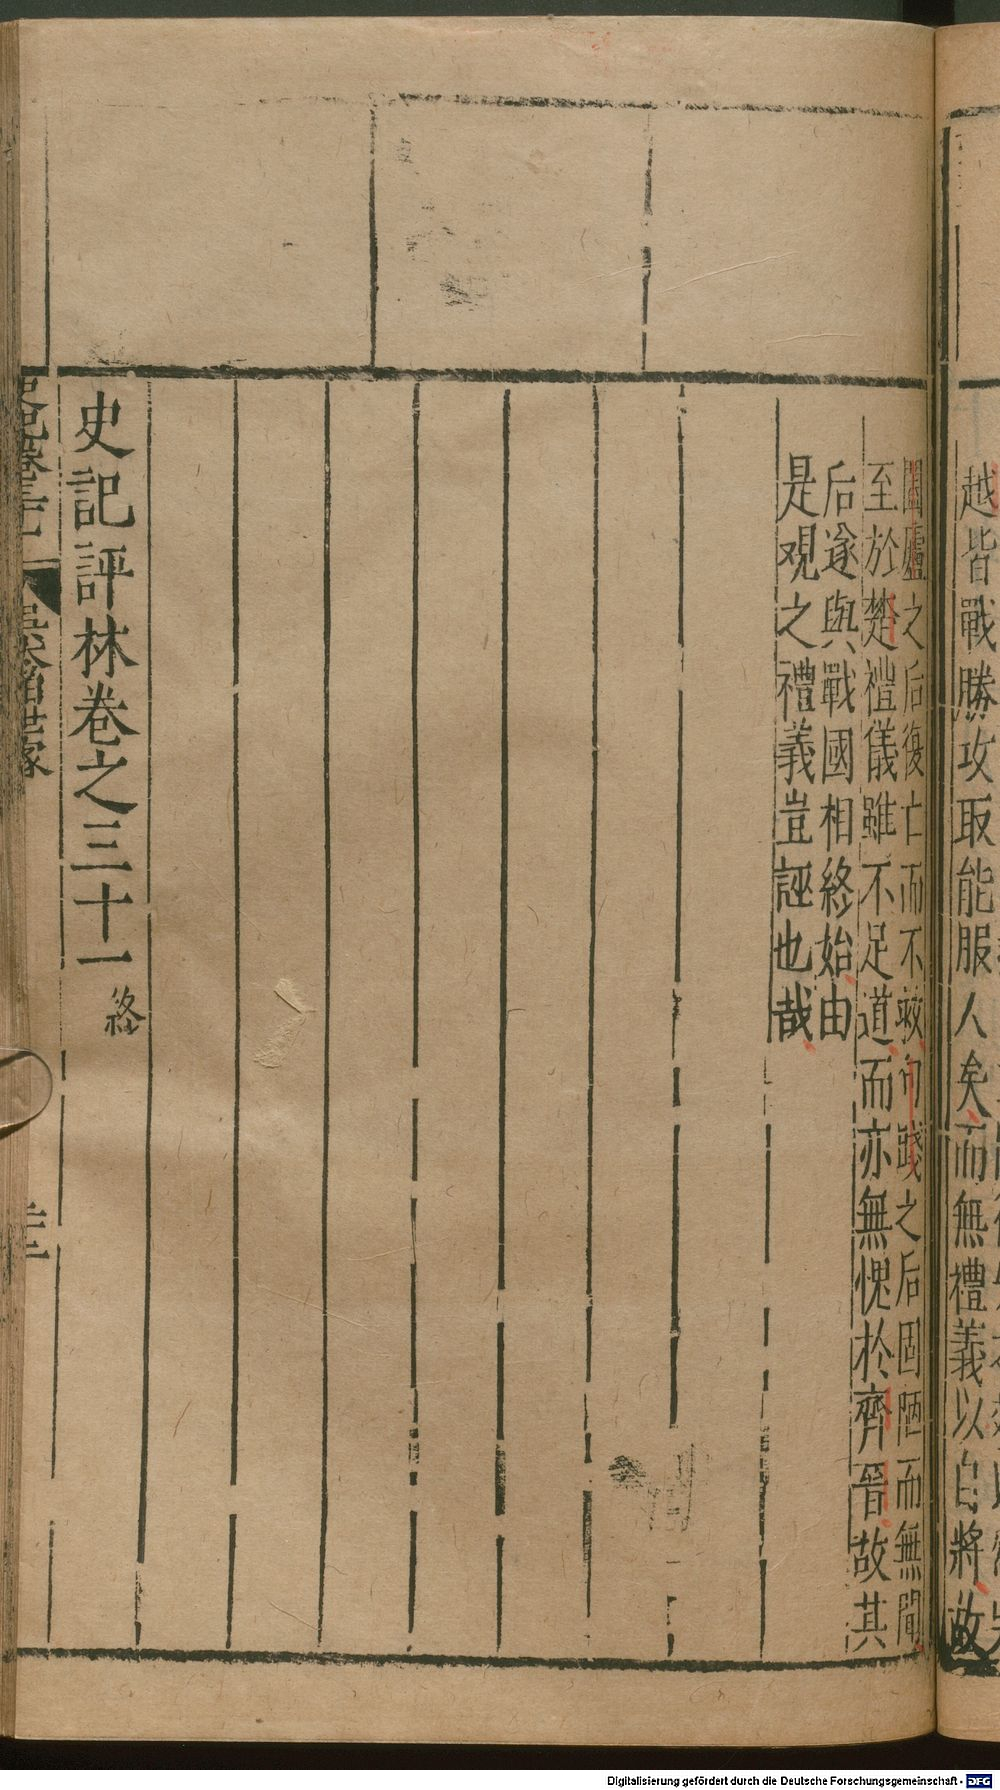 越皆戰勝攻取能服人矣而無禮義以自將故
闔廬之后復亡而不救句踐之后固陋而無聞
至於楚禮儀雖不足道而亦無愧於齊晉故其
后遂與戰國相終始由
是觀之禮義豈誣也哉
史記評林卷之三十一 終
Digitalisierung gefördert durch die Deutsche Forschungsgemeinschaft - DFG